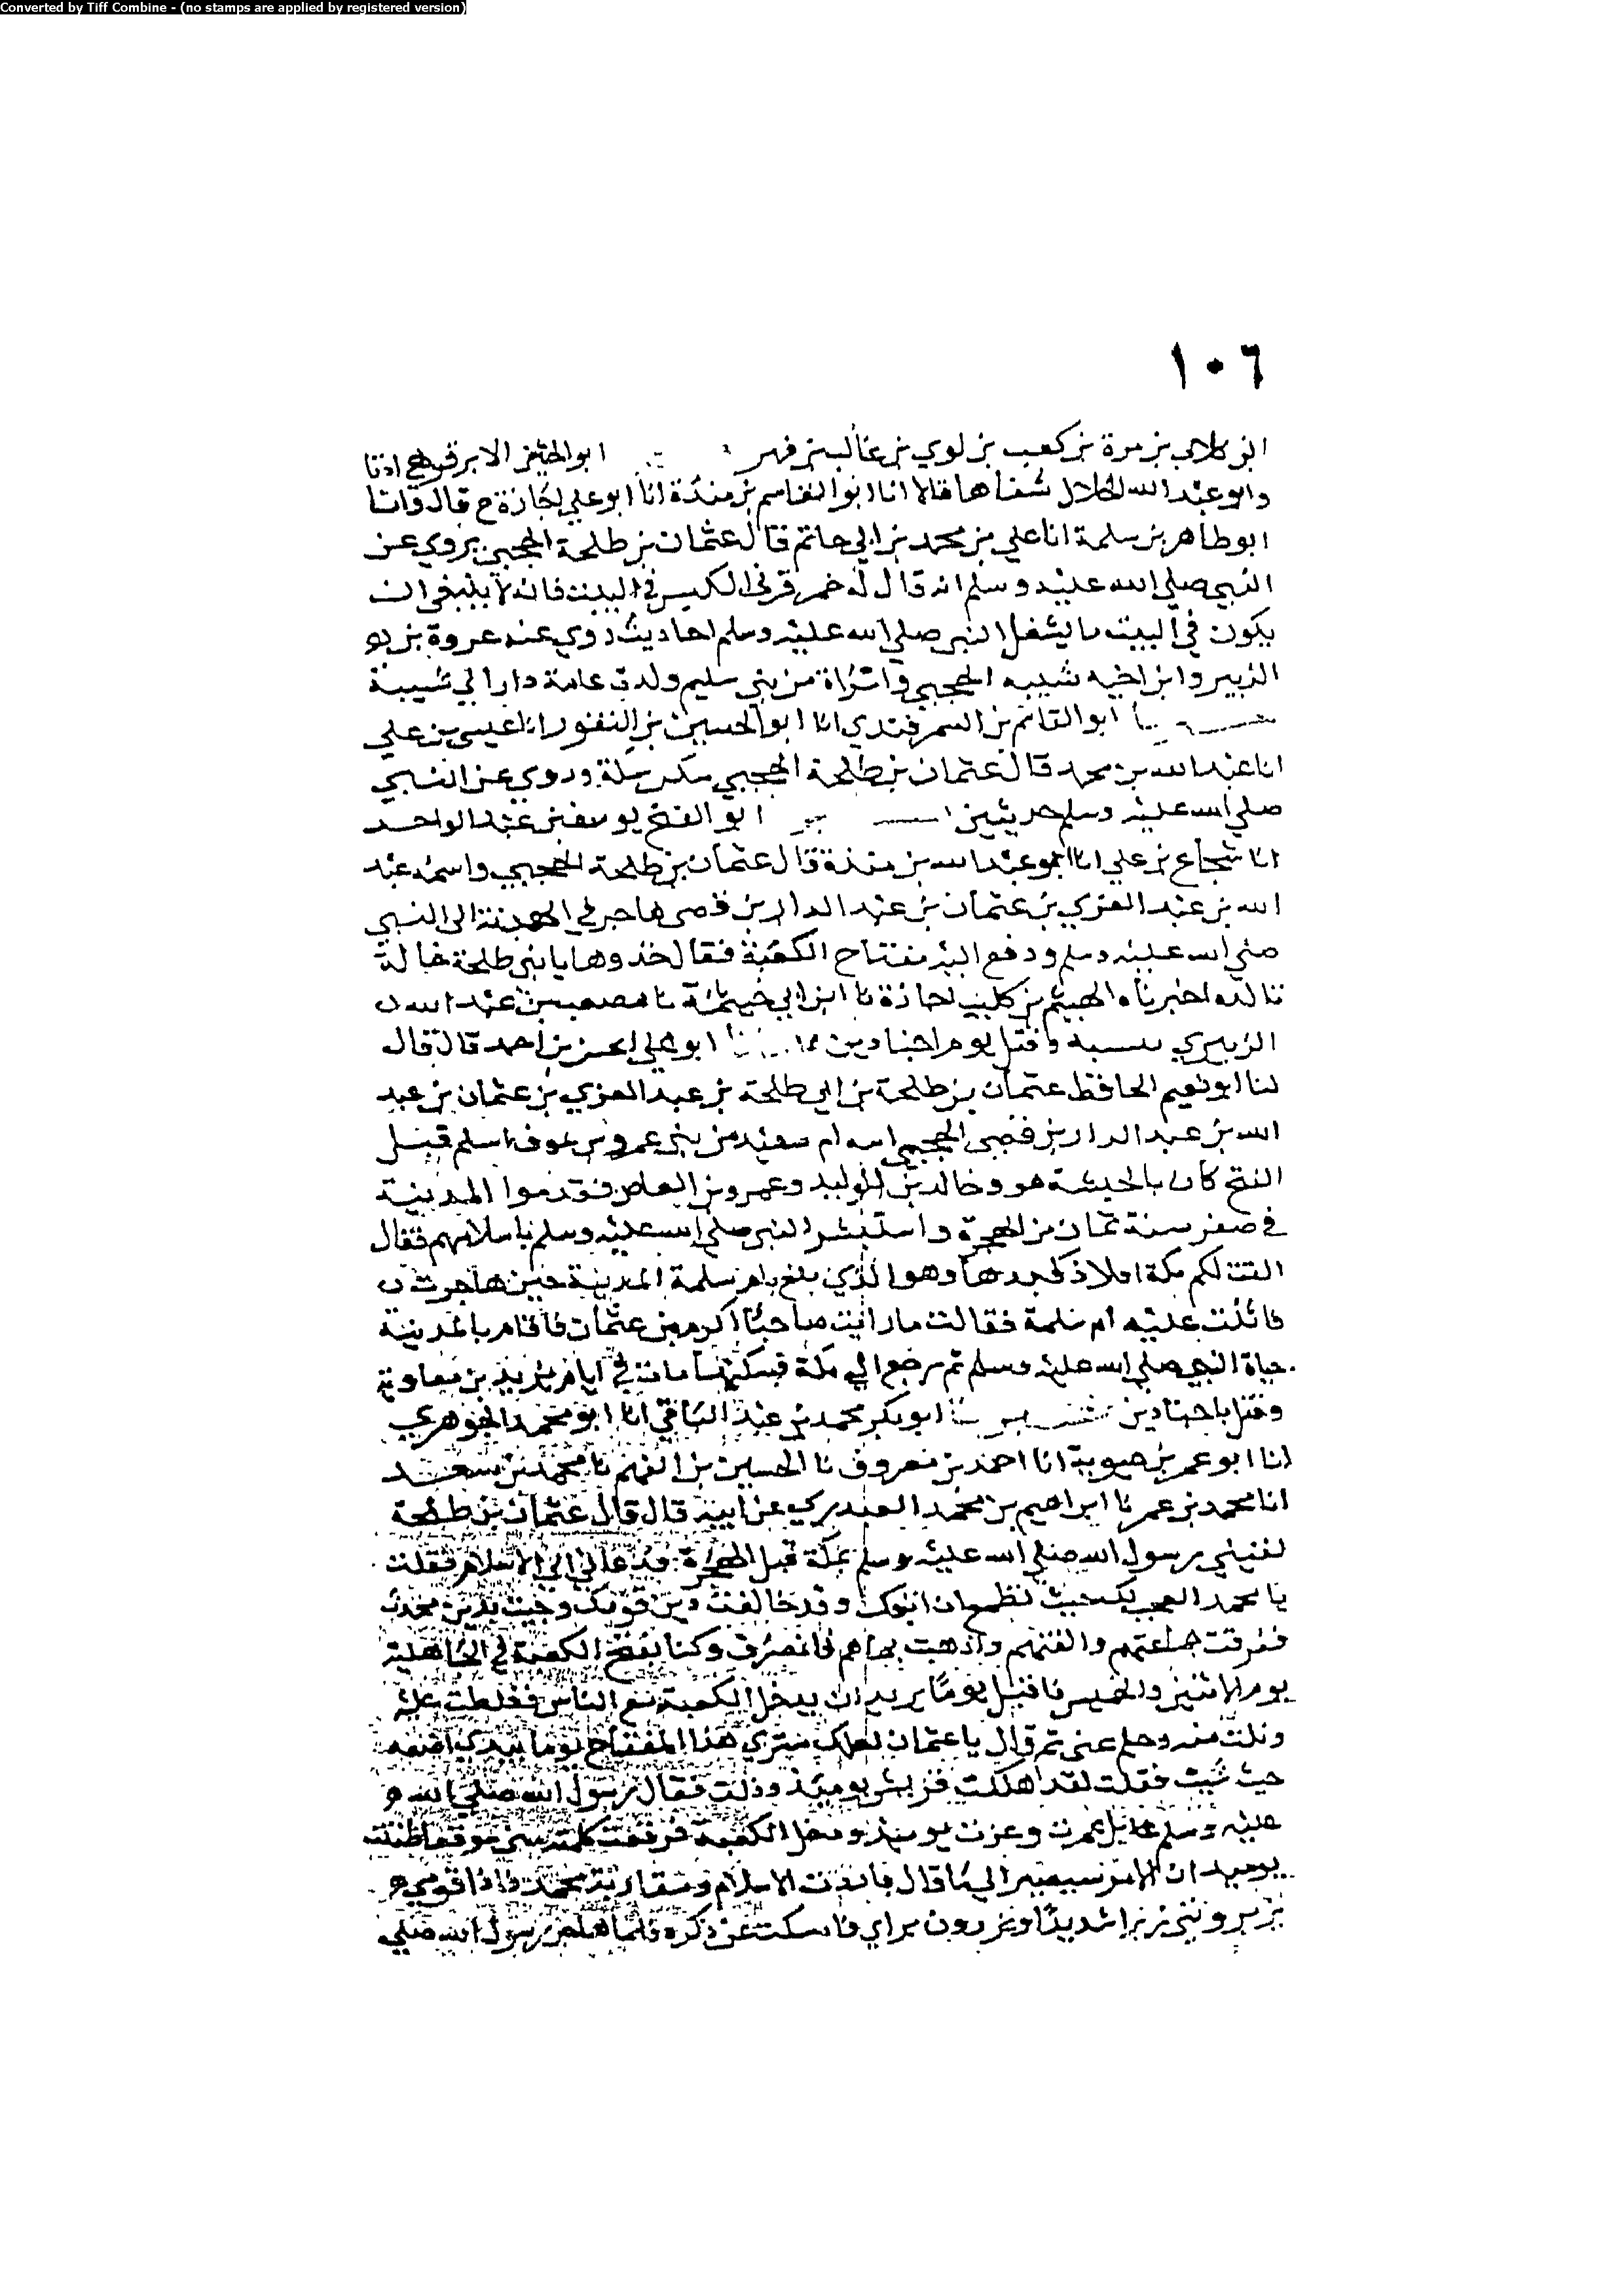 Converted by Tiff Combine - (no stamps are applied by registered version)
١٠٦
ابن كلاب بن مرة بن كعب بن لوي بن غالب بن فهر ابو الابرقوهي اذنا
وابو عبد الله الخلال شفاها قالا انا ابو القاسم بن مندة انا ابو علي اجازة ح قال وانا
ابو طاهر بن سلمة انا علي بن محمد بن ابي حاتم قال عثمان بن طلحة الحجبي يروي عن
النبي صلي الله عليه وسلم انه قال له خمر قرني الكبس في البيت فانه لا ينبغي ان
يكون في البيت ما يشغل النبي صلي الله عليه وسلم احاديث روي عنه عروة بن بو
الزبير وابن اخيه شيبه الحجبي وامراة من بني سليم ولدت عامة دار ابي شيبة
ابو القاسم بن السمرقندي انا ابو الحسين بن النقور انا عيسي بن علي
انا عبد الله بن محمد قال عثمان بن طلحة الحجبي سكن مكة وروي عن النبي
صلي الله عليه وسلم حديثين ابو الفتح يوسف بن عبد الواحد
انا شجاع بن علي انا ابو عبد الله بن مندة قال عثمان بن طلحة الحجبي واسمه عبد
الله بن عبد العزي بن عثمان بن عبد الدار بن قصي هاجر في الهدنة الى النبي
صلي الله عليه وسلم ودفع اليه مفتاح الكعبة فقال خذوها يا بني طلحة خالدة
تالده اخبرناه الهيثم بن كليب اجازة نا ابن ابي خيثمة نا مصعب بن عبد الله
الزبيري بنسبه وقتل يوم اجنادين ابو علي الحسن بن احمد قال قال
لنا ابو نعيم الحافظ عثمان بن طلحة بن ابي طلحة بن عبد العزي بن عثمان بن عبد
الله بن عبد الدار بن قصي الحجبي امه ام سعيد من بني عمرو بن عوف اسلم قبل
الفتح كان بالحبشة هو وخالد بن الوليد وعمرو بن العاص فقدموا المدينة
في صفر سنة ثمان من الهجرة واستبشر النبي صلي الله عليه وسلم باسلامهم فقال
القت لكم مكة افلاذ كبدها وهو الذي بلغ بام سلمة المدينة حين هاجرت
فاثنت عليه ام سلمة فقالت ما رايت صاحبا اكرم من عثمان فاقام بالمدينة
حياة النبي صلي الله عليه وسلم ثم رجع الي مكة فسكنها مات في ايام يزيد بن معاوية
وقتل باجنادين ابو بكر محمد بن عبد الباقي انا ابو محمد الجوهري
انا ابو عمر بن حيوية انا احمد بن معروف نا الحسين بن الفهم نا محمد بن سعد
انا محمد بن عمر نا ابراهيم بن محمد العبدري عن ابيه قال قال عثمان بن طلحة
لقيني رسول الله صلي الله عليه وسلم بمكة قبل الهجرة فدعاني الي الاسلام فقلت
يا محمد العجب لك حيث تطمع ان اتبعك وقد خالفت دين قومك وجيت بدين محدث
ففرقت جماعتهم والفتهم واذهبت بهاهم فانصرف وكنا نفتح الكعبة في الجاهلية
يوم الاثنين والخميس فاقبل يوما يريد ان يدخل الكعبة مع الناس فغلظت عليه
ونلت منه وحلم عني ثم قال يا عثمان لعلك ستري هذا المفتاح يوما بيدي اضعه
حيث شيت فقلت لقد هلكت قريش يوميذ وذلت فقال رسول الله صلي الله
عليه وسلم بل عمرت وعزت يوميذ ودخل الكعبة فوقعت كلمته مني موقعا ظننت
يوميذ ان الامر سيصير الي ما قال فاردت الاسلام ومقاربة محمد فاذا قومي
يزبرونني زبرا شديدا ويزرون براي فامسكت عن ذكره فلما هاجر رسول الله صلي